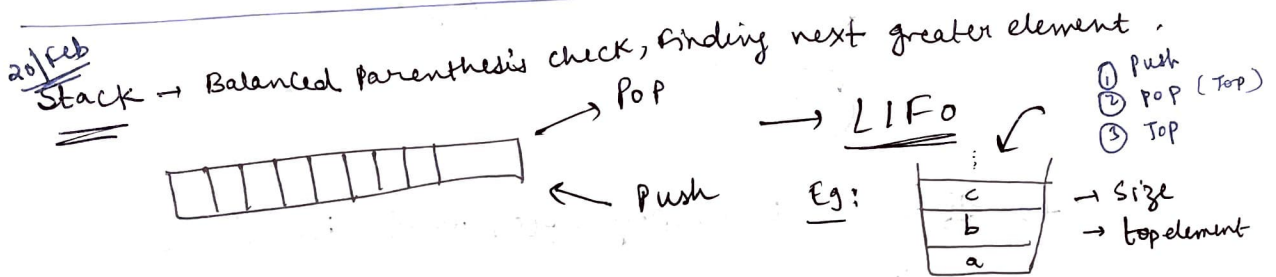 20/Feb
Stack → Balanced Parenthesis check, Finding next greater element.
Pop
→ LIFO
① Push
② POP (Top)
③ TOP
← Push
Eg:
c
b
a
→ Size
→ top element